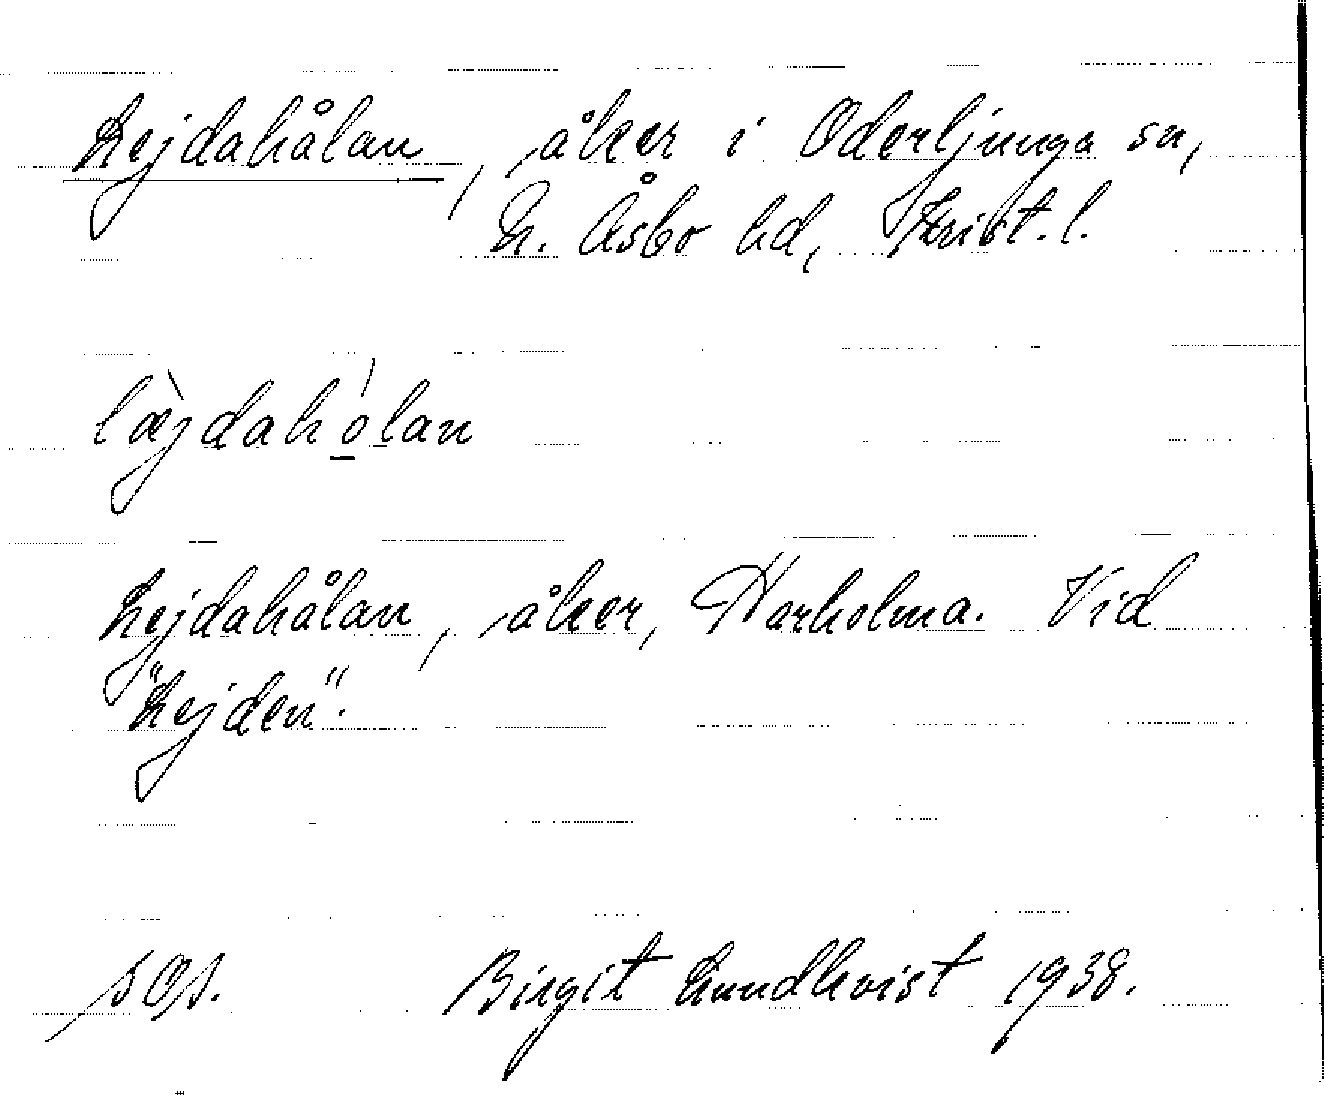 Lejdahålan, åker i Oderljunga sn,
N. Åsbo hd, Krist. l.
læ̀jdahó̱lan
Lejdahålan, åker, Harholma. Vid
"Lejden".
Birgit Lundkvist 1938.